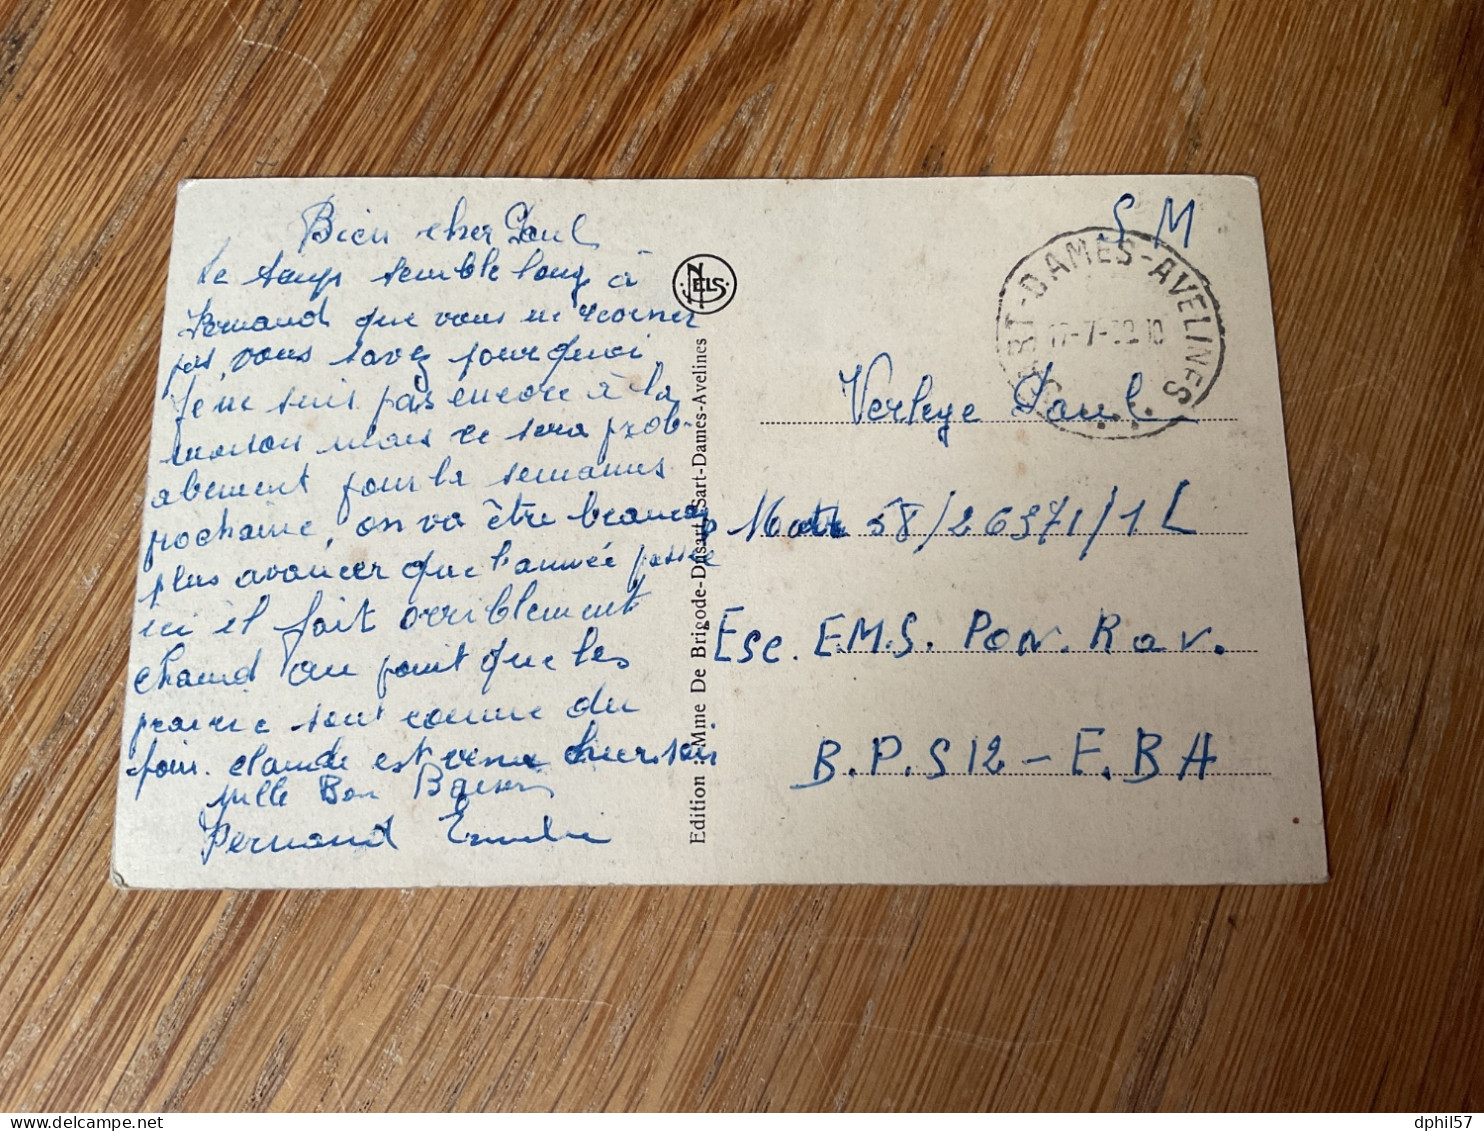 Bien cher Paul
Le temps semble long à
Fernand que vous ne
pas, vous savez pourquoi
Je ne suis pas encore à la
maison mais ce sera prob-
ablement pour la semaines
prochaine, on va être beaucoup
plus avancer que l'année passée
ici il fait orriblement
chaud au point que les
prairie sont comme du
foin. Claude est venu hier soir
Mille Bon Baisers
Fernand
NELS
Edition : Mme De Brigode-Dusart, Sart-Dames-Avelines
S M
SART-DAMES-AVELINES
17-7- 10
Verleye Paul
Matr 58/26371/1 L
Esc. E.M.S. Pon. Rav.
B.P.S 12 - F.B A
dphil57